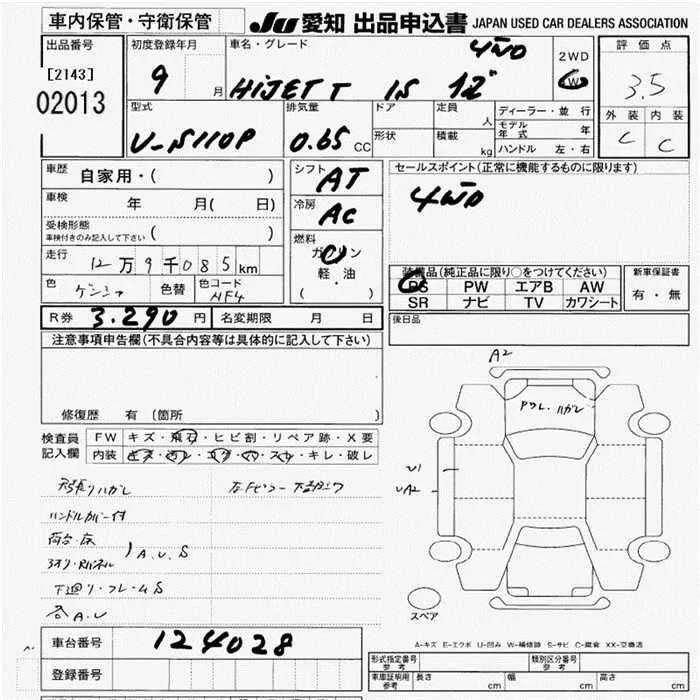 車内保管・守衛保管 JU 愛知 出品申込書 JAPAN USED CAR DEALERS ASSOCIATION
出品番号 初度登録年月 車名・グレード 4WD 2WD 4WD 評価点
[2143] 9 月 HiJET T 1S 12" 3.5
02013 外装 内装
型式 排気量 ドア 定員 人 ディーラー・並 行
U-S110P 0.65 CC 形状 積載 kg モデル年式 年 C C
ハンドル 左・右
車歴 自家用・( ) シフト AT セールスポイント(正常に機能するものに限ります)
車検 年 月( 日) 冷房 AC 4WD
受検形態
車検付きのみ記入して下さい ( )
走行 12万9千085km 燃料 ガソリン
軽・油
( )
装備品(純正品に限り○をつけてください) 新車保証書
色 色替 色コード PS PW エアB AW 有・無
SR ナビ TV カワシート
R券 3.290 円 名変期限 月 日 後日品
注意事項申告欄(不具合内容等は具体的に記入して下さい)
A2
修復歴 有 (箇所 )
検査員 FW キズ・飛石・ヒビ割・リペア跡・X要
記入欄 内装 キズ・汚レ・コゲ・穴・スレ・キレ・破レ
ハンドルカバー付
A.U.S
下廻リ・フレームS
各A.U
U1
UA2
スペア
A-キズ E-エクボ U-凹み W-補修跡 S-サビ C-腐食 XX-交換済
車台番号 124028
登録番号
形式指定番号 参考 類別区分番号 参考
車庫証明用 参考 長さ cm 幅 cm 高さ cm